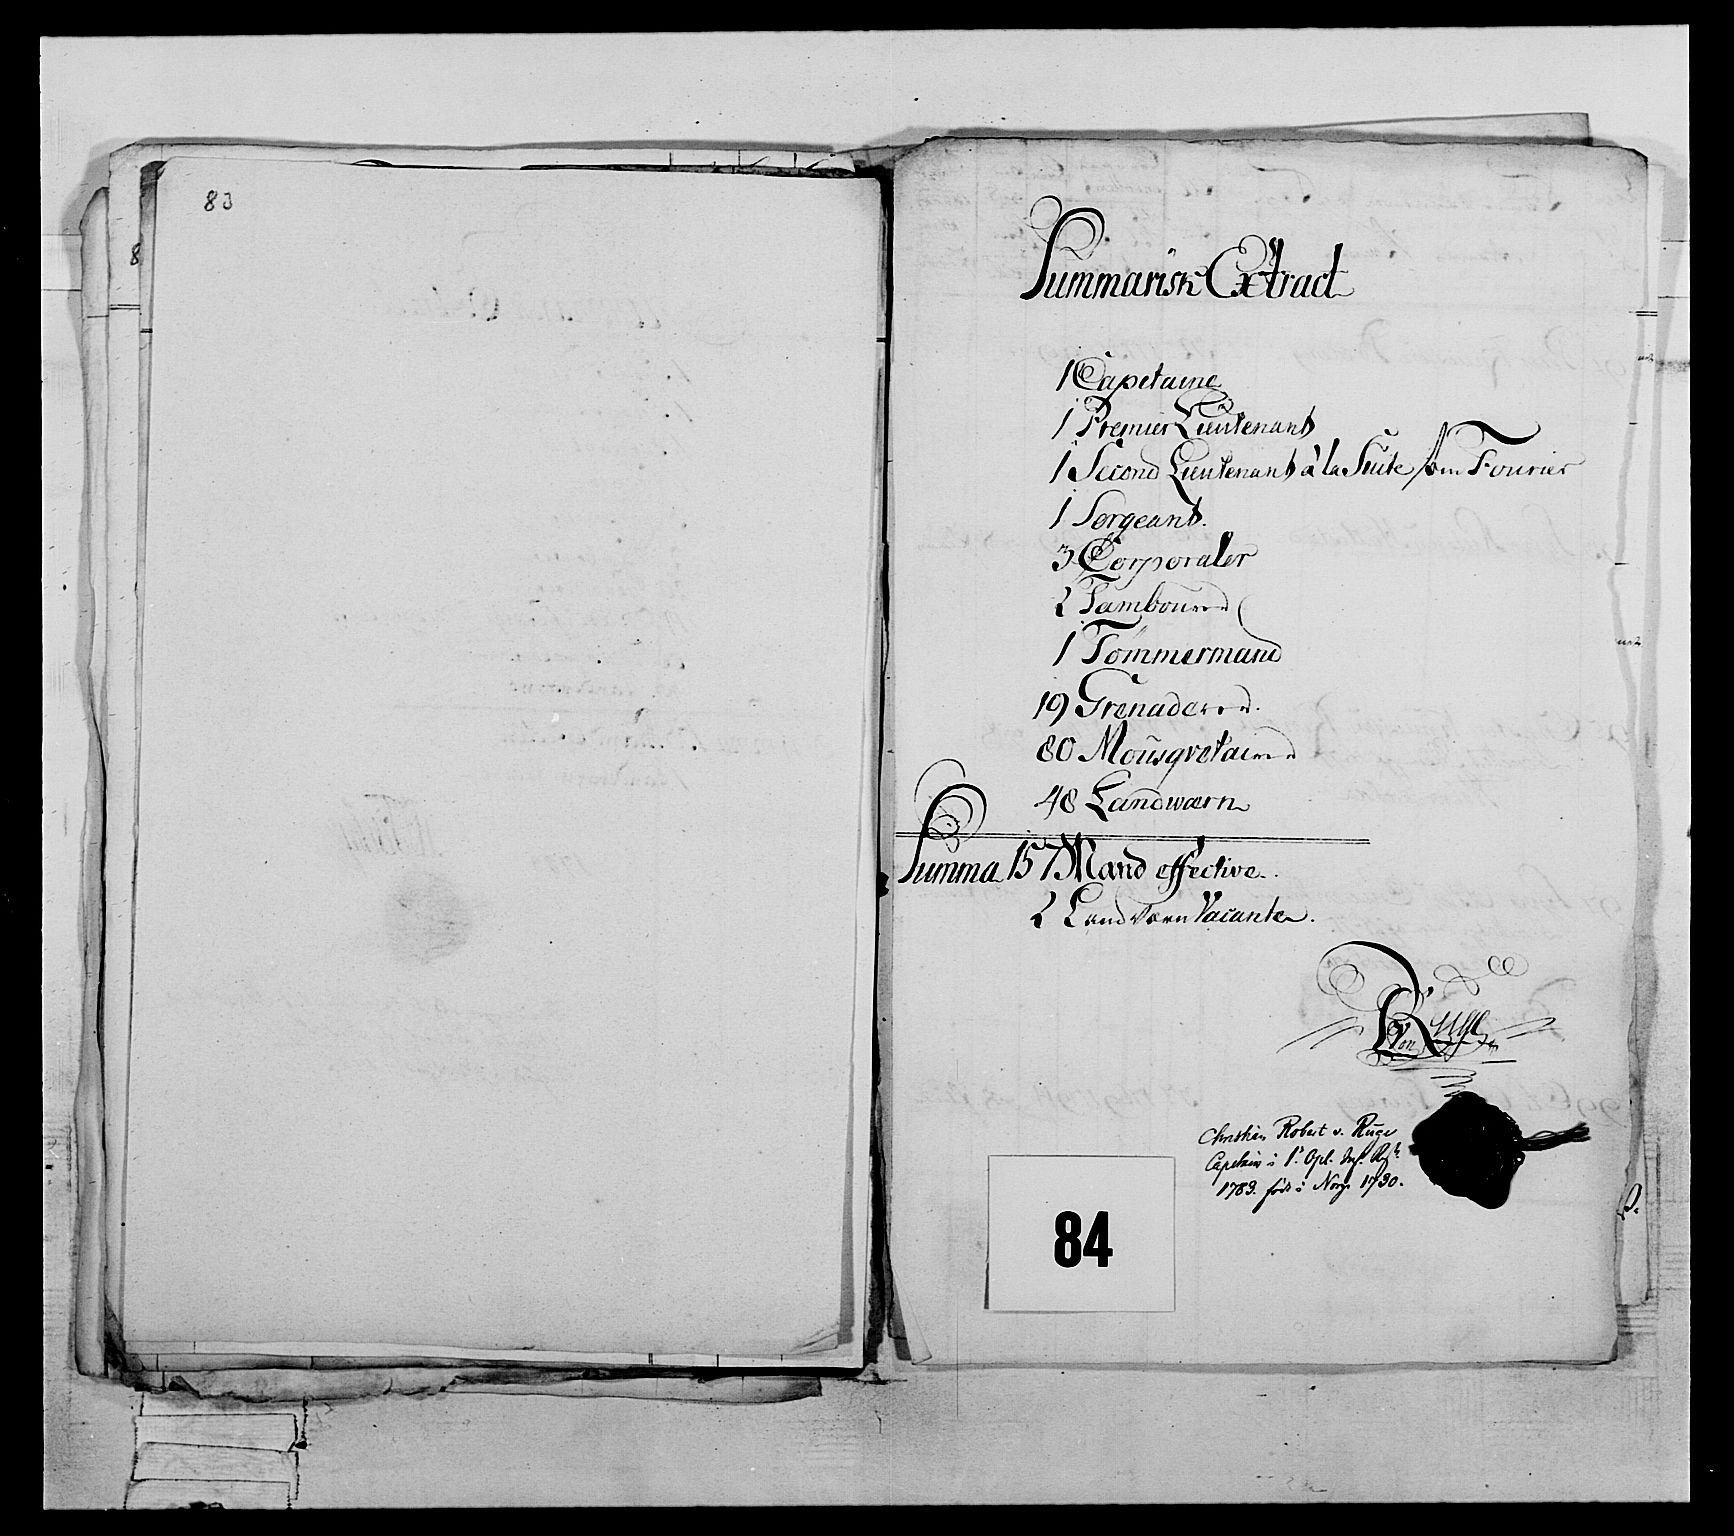 83
8
Summarisk Extract
1 Capetaine
1 Premier Lieutenant
1 Second Lieutenant à la Suite som Fourier
1 Sergeant.
3 Corporaler
2 Tambourer
1 Tømmermand
19 Grenaderer.
80 Mousqvetairer
48 Landwærn
Summa 157 Mand effective.
2 Landværn Vacante.
von Ruge
Christian Robert v. Ruge
Capetain i 1' Opl. Inf. Rgt
1783. født i Norge 1730.
84